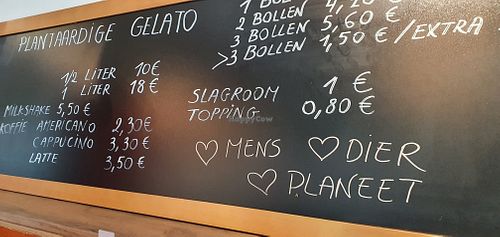 PLANTAARDIGE GELATO
1/2 LITER 10€
1 LITER 18€
MILKSHAKE 5,50 €
KOFFIE AMERICANO 2,30€
CAPPUCINO 3,30 €
LATTE 3,50 €
1 BOLLEN
2 BOLLEN 4,20 €
3 BOLLEN 5,60 €
>3 BOLLEN 1,50 €/EXTRA
SLAGROOM 1 €
TOPPING 0,80 €
♡ MENS ♡ DIER
♡ PLANEET
HappyCow